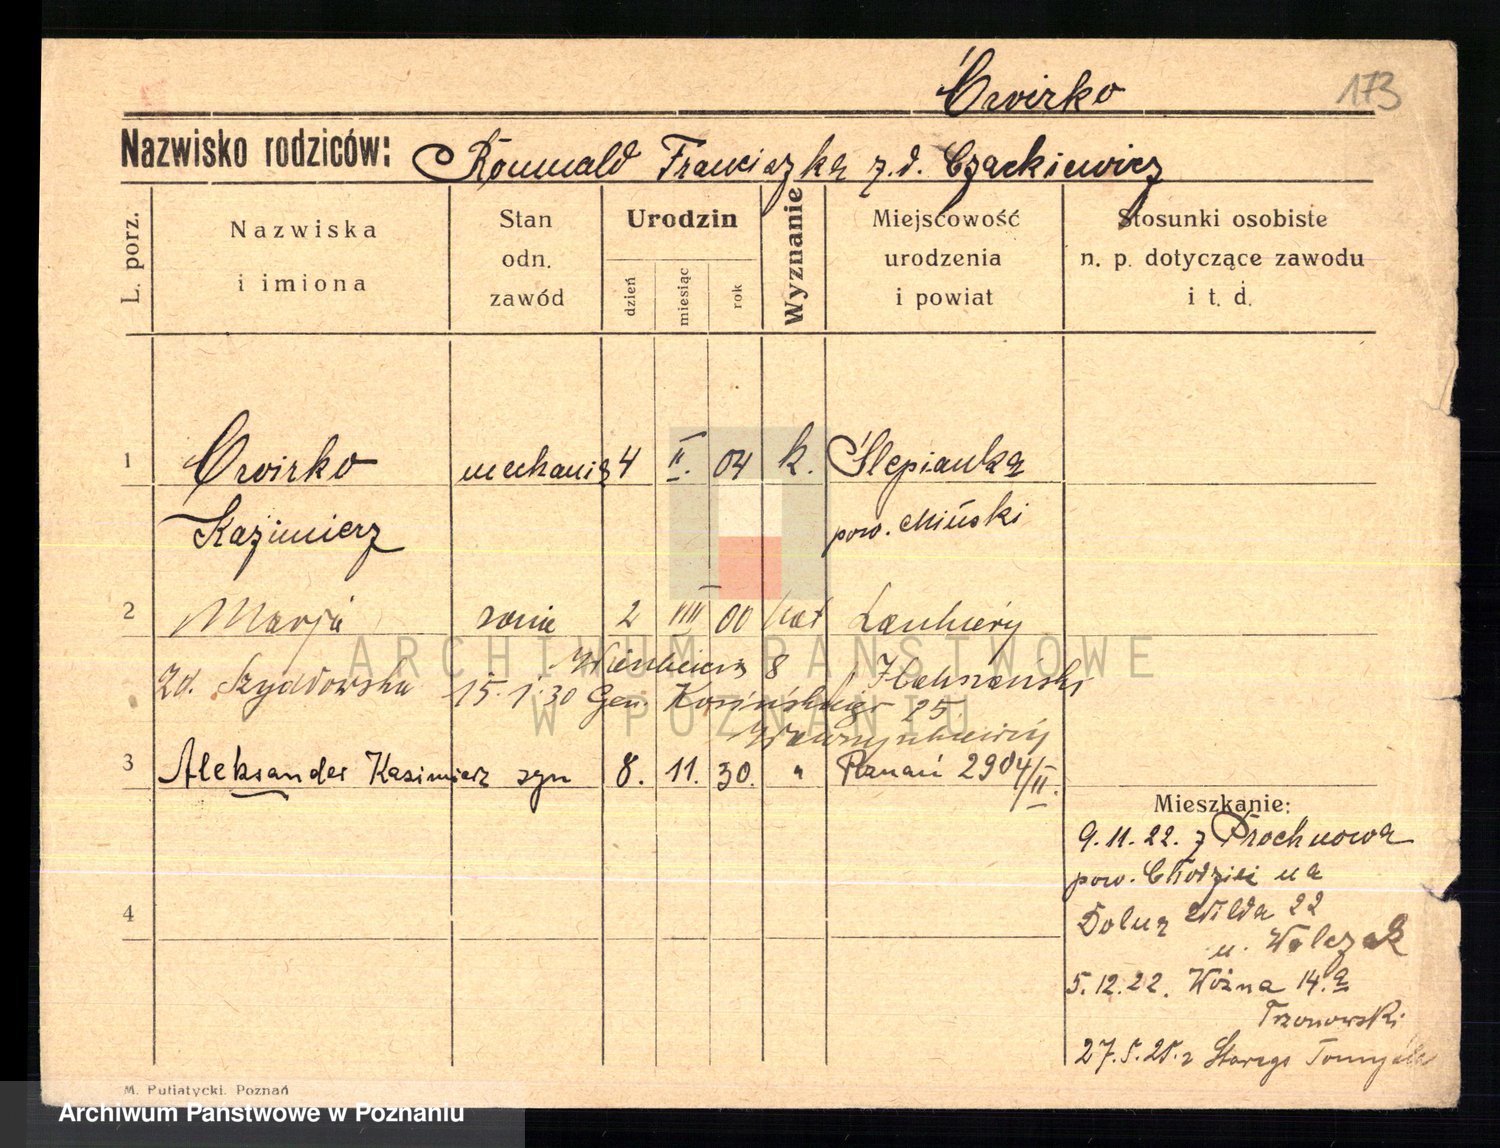 Ćwirko 173
Nazwisko rodziców: Romuald Franciszka z.d. Czackiewicz
L. porz.
Nazwiska
i imiona
Stan
odn.
zawód
Urodzin
dzień
miesiąc
rok
Wyznanie
Miejscowość
urodzenia
i powiat
Stosunki osobiste
n. p. dotyczące zawodu
i t. d.
1 Ćwirko mechanik 4 II. 04 k. Ślepianka
Kazimierz pow. Miński
2 Marja żona 2 VIII 00 kat
zd. Szydłowska 15.1.30 Gen. Kosińskiego 25
8
3 Aleksander Kazimierz syn 8. 11. 30. " Poznań 2904/II.
Mieszkanie:
9.11.22. z Prochnowa
pow. Chodzież na
4
Dolna Wilda 22
u. Walczak
5.12.22. Woźna 14.a
Trzonowski
27.5.25. z Starego Tomyśla
M. Putiatycki. Poznań
ARCHIWUM PAŃSTWOWE
W POZNANIU
Archiwum Państwowe w Poznaniu